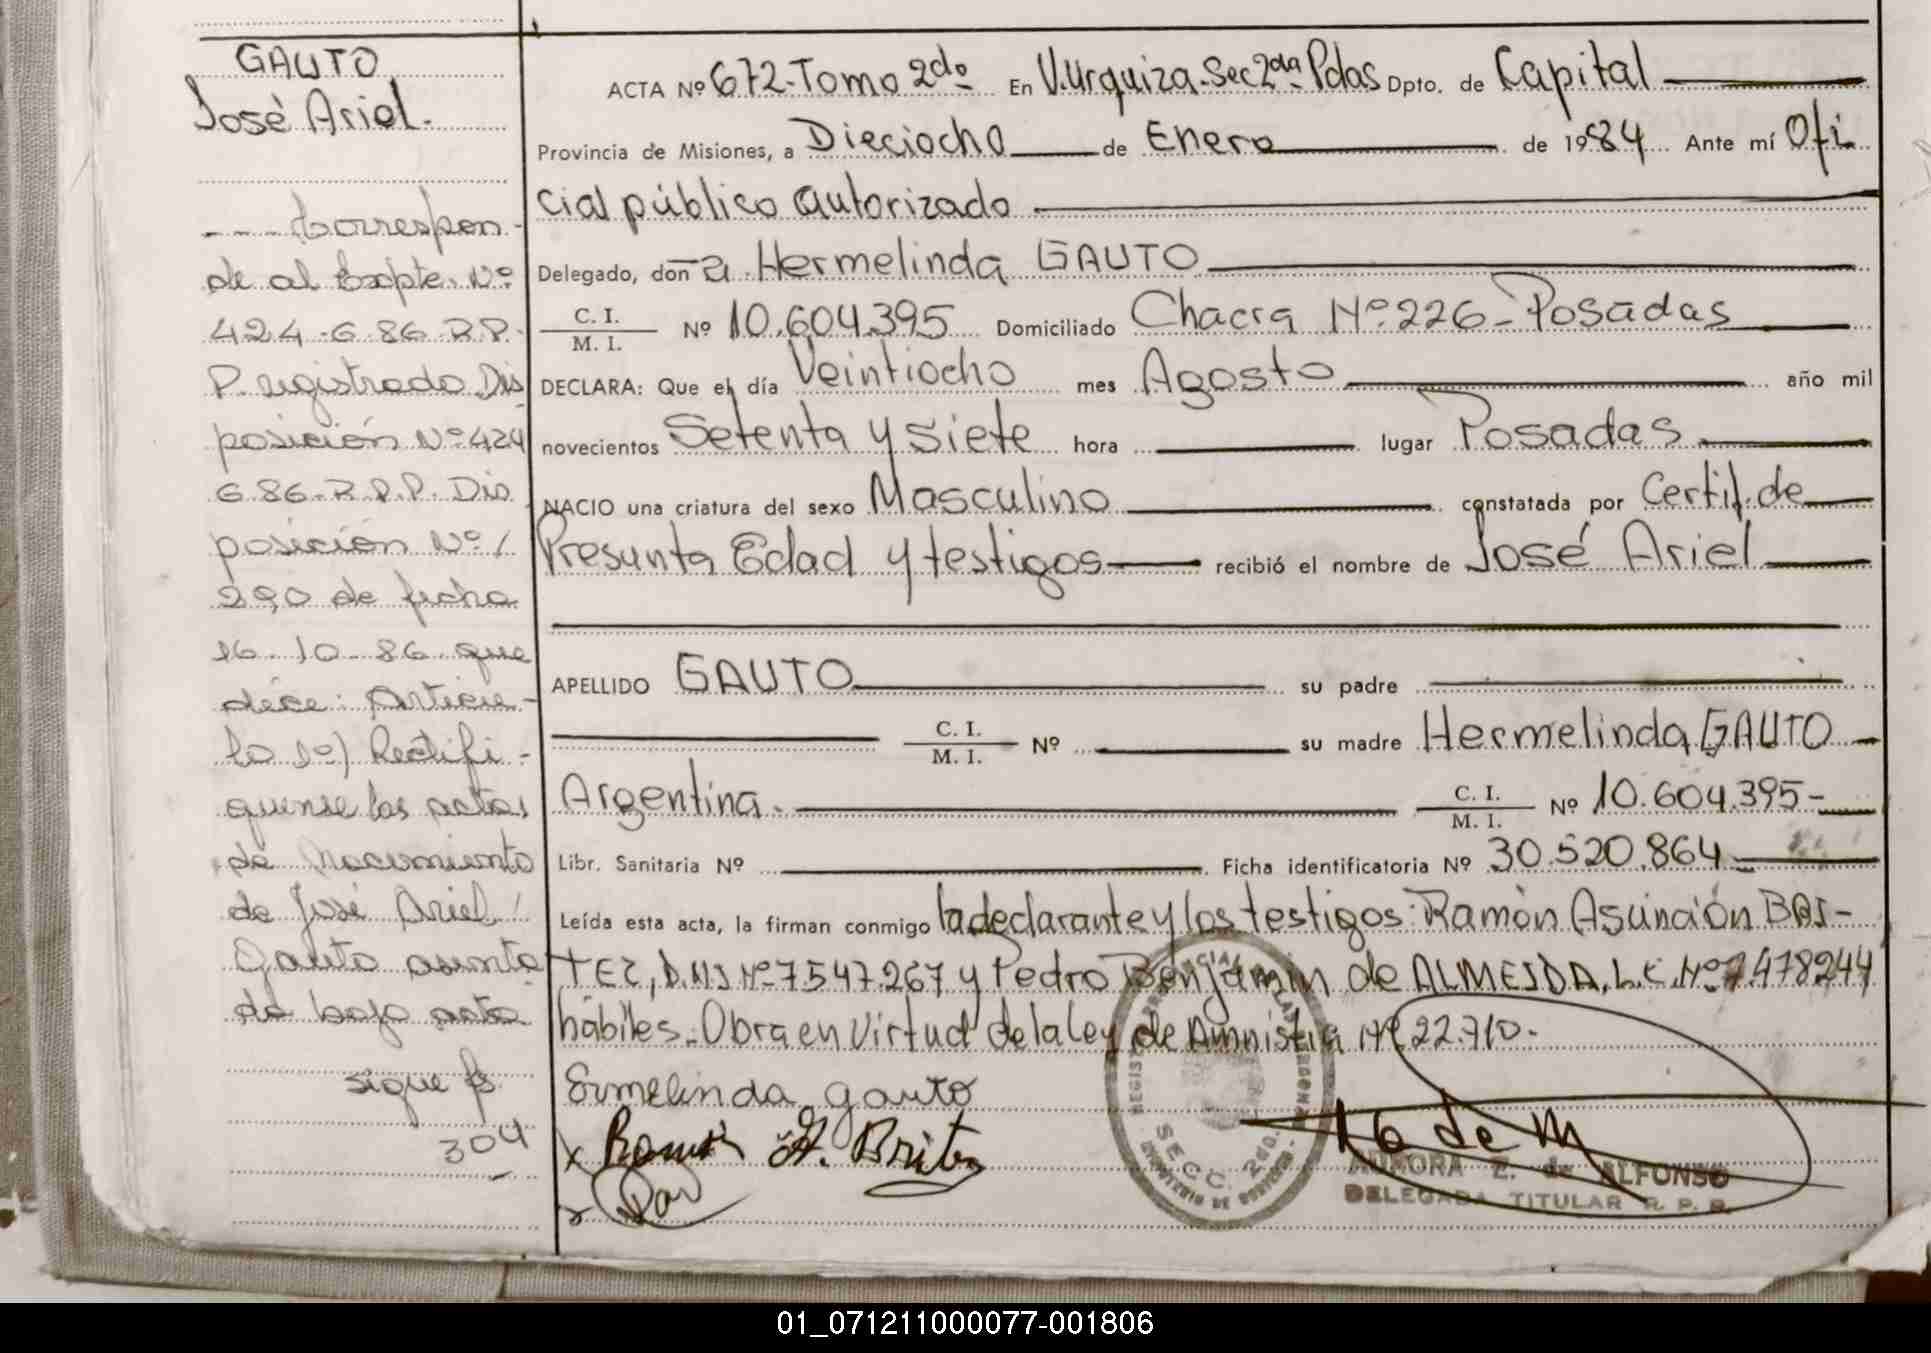 GAUTO
José Ariel.
- - - Correspon-
de al Expte. Nº
424-G-86-R.P.
P. registrado Dis
posición Nº 424
G 86-R.P.P. Dis
posición Nº /
290 de fecha
16-10-86 que
dice: Artícu-
lo 1º) Rectifi-
quense las actas
de Nacimiento
de José Ariel /
Gauto asenta
da bajo acta
sigue fs
304
ACTA Nº 672-Tomo 2do En V.Urquiza-Sec 2da Pdas Dpto. de Capital
Provincia de Misiones, a Dieciocho de Enero de 1984 Ante mí Ofi
cial público autorizado
Delegado, don-a Hermelinda GAUTO
C. I. / M. I. Nº 10.604.395 Domiciliado Chacra Nº 226-Posadas
DECLARA: Que el día Veintiocho mes Agosto año mil
novecientos Setenta y siete hora lugar Posadas
NACIO una criatura del sexo Masculino constatada por Certif. de
Presunta Edad y testigos recibió el nombre de José Ariel
APELLIDO GAUTO su padre
C. I. / M. I. Nº su madre Hermelinda GAUTO
Argentina. C. I. / M. I. Nº 10.604.395-
Libr. Sanitaria Nº Ficha identificatoria Nº 30.520.864
Leída esta acta, la firman conmigo la declarante y los testigos: Ramón Asunción BRI-
TEZ, D.N.I Nº 7547.267 y Pedro Benjamin de ALMEIDA, L.E. Nº 7.478244
hábiles.-Obra en Virtud de la Ley de Amnistia Nº 22.710.-
Ermelinda gauto
x Ramón A. Britez
AURORA E. de ALFONSO
DELEGADA TITULAR R. P. P.
SECC. 2da.
01_071211000077-001806